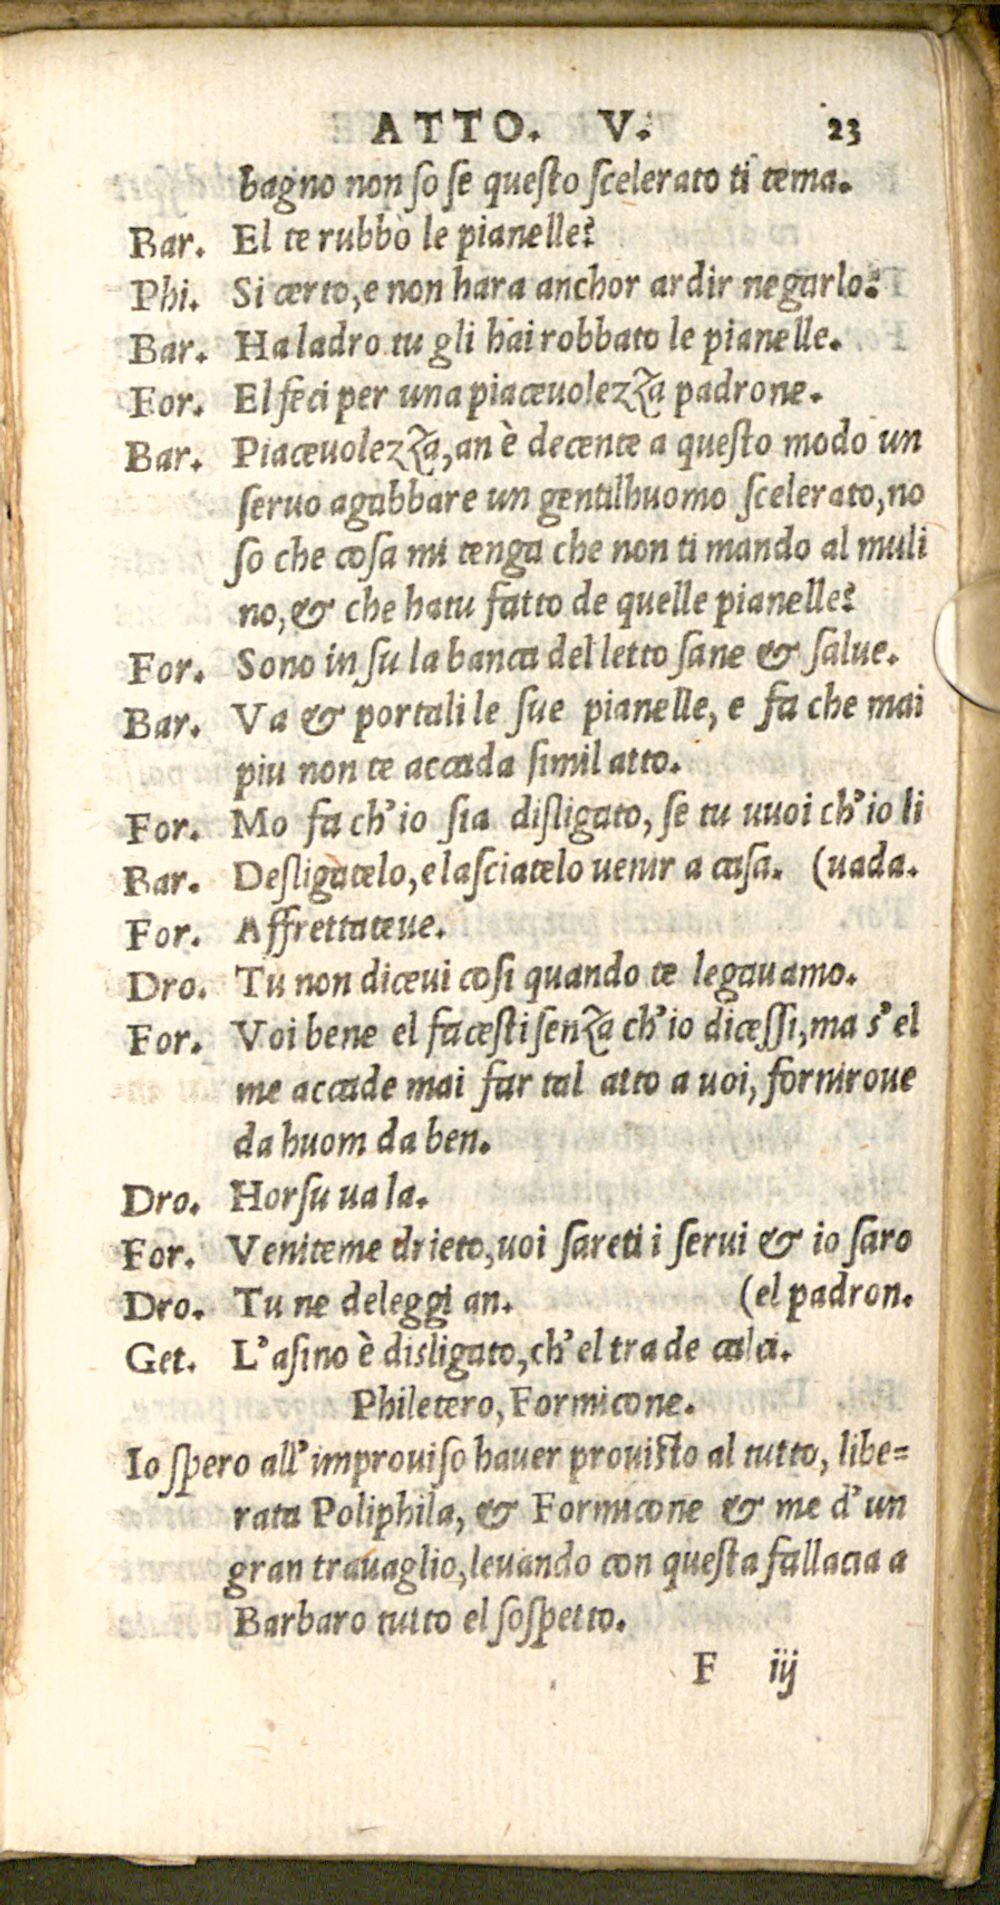 ATTO. V. 23
bagno non so se questo scelerato ti tema.
Bar. El te rubbò le pianelle?
Phi. Si certo, e non hara anchor ardir negarlo?
Bar. Ha ladro tu gli hai robbato le pianelle.
For. El feci per una piaceuolezza padrone.
Bar. Piaceuolezza, an è decente a questo modo un
seruo agabbare un gentilhuomo scelerato, no
so che cosa mi tenga che non ti mando al muli
no, & che hatu fatto de quelle pianelle?
For. Sono in su la banca del letto sane & salue.
Bar. Va & portali le sue pianelle, e fa che mai
piu non te accada simil atto.
For. Mo fa ch'io sia disligato, se tu uuoi ch'io li
Bar. Desligatelo, e lasciatelo uenir a casa. (uada.
For. Affrettateue.
Dro. Tu non diceui cosi quando te legauamo.
For. Voi bene el facesti senza ch'io dicessi, ma s'el
me accade mai far tal atto a uoi, forniroue
da huom da ben.
Dro. Horsu ua la.
For. Veniteme drieto, uoi sareti i serui & io saro
Dro. Tu ne deleggi an. (el padron.
Get. L'asino è disligato, ch'el tra de calci.
Philetero, Formicone.
Io spero all'improuiso hauer prouisto al tutto, libe=
rata Poliphila, & Formicone & me d'un
gran trauaglio, leuando con questa fallacia a
Barbaro tutto el sospetto.
F iij